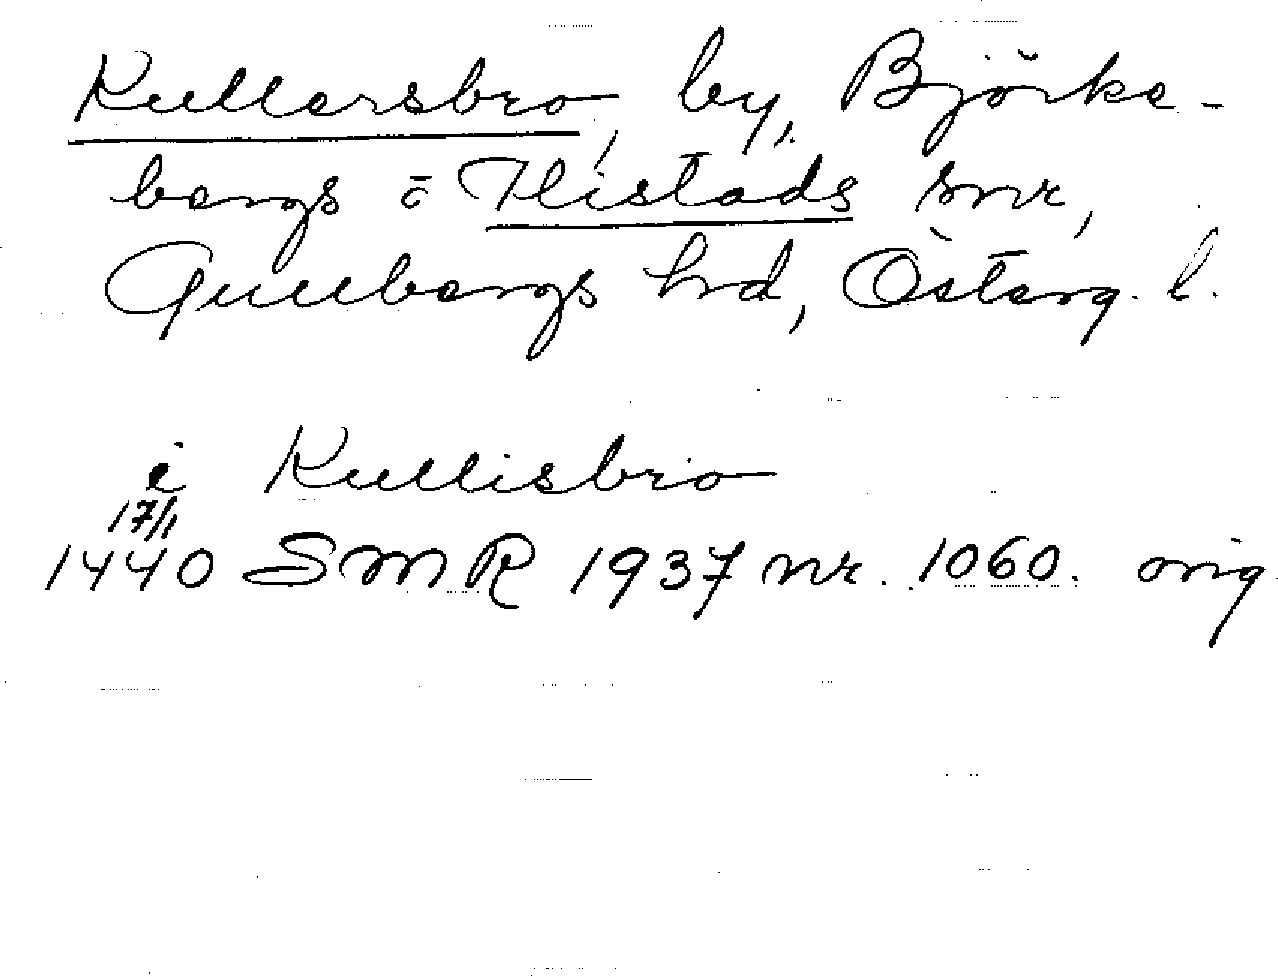 Kullersbro, by, Björke-
bergs o Flistads snr,
Gullbergs hrd, Österg. l.
i Kullisbro
17/1
1440 SMR 1937 nr. 1060. orig